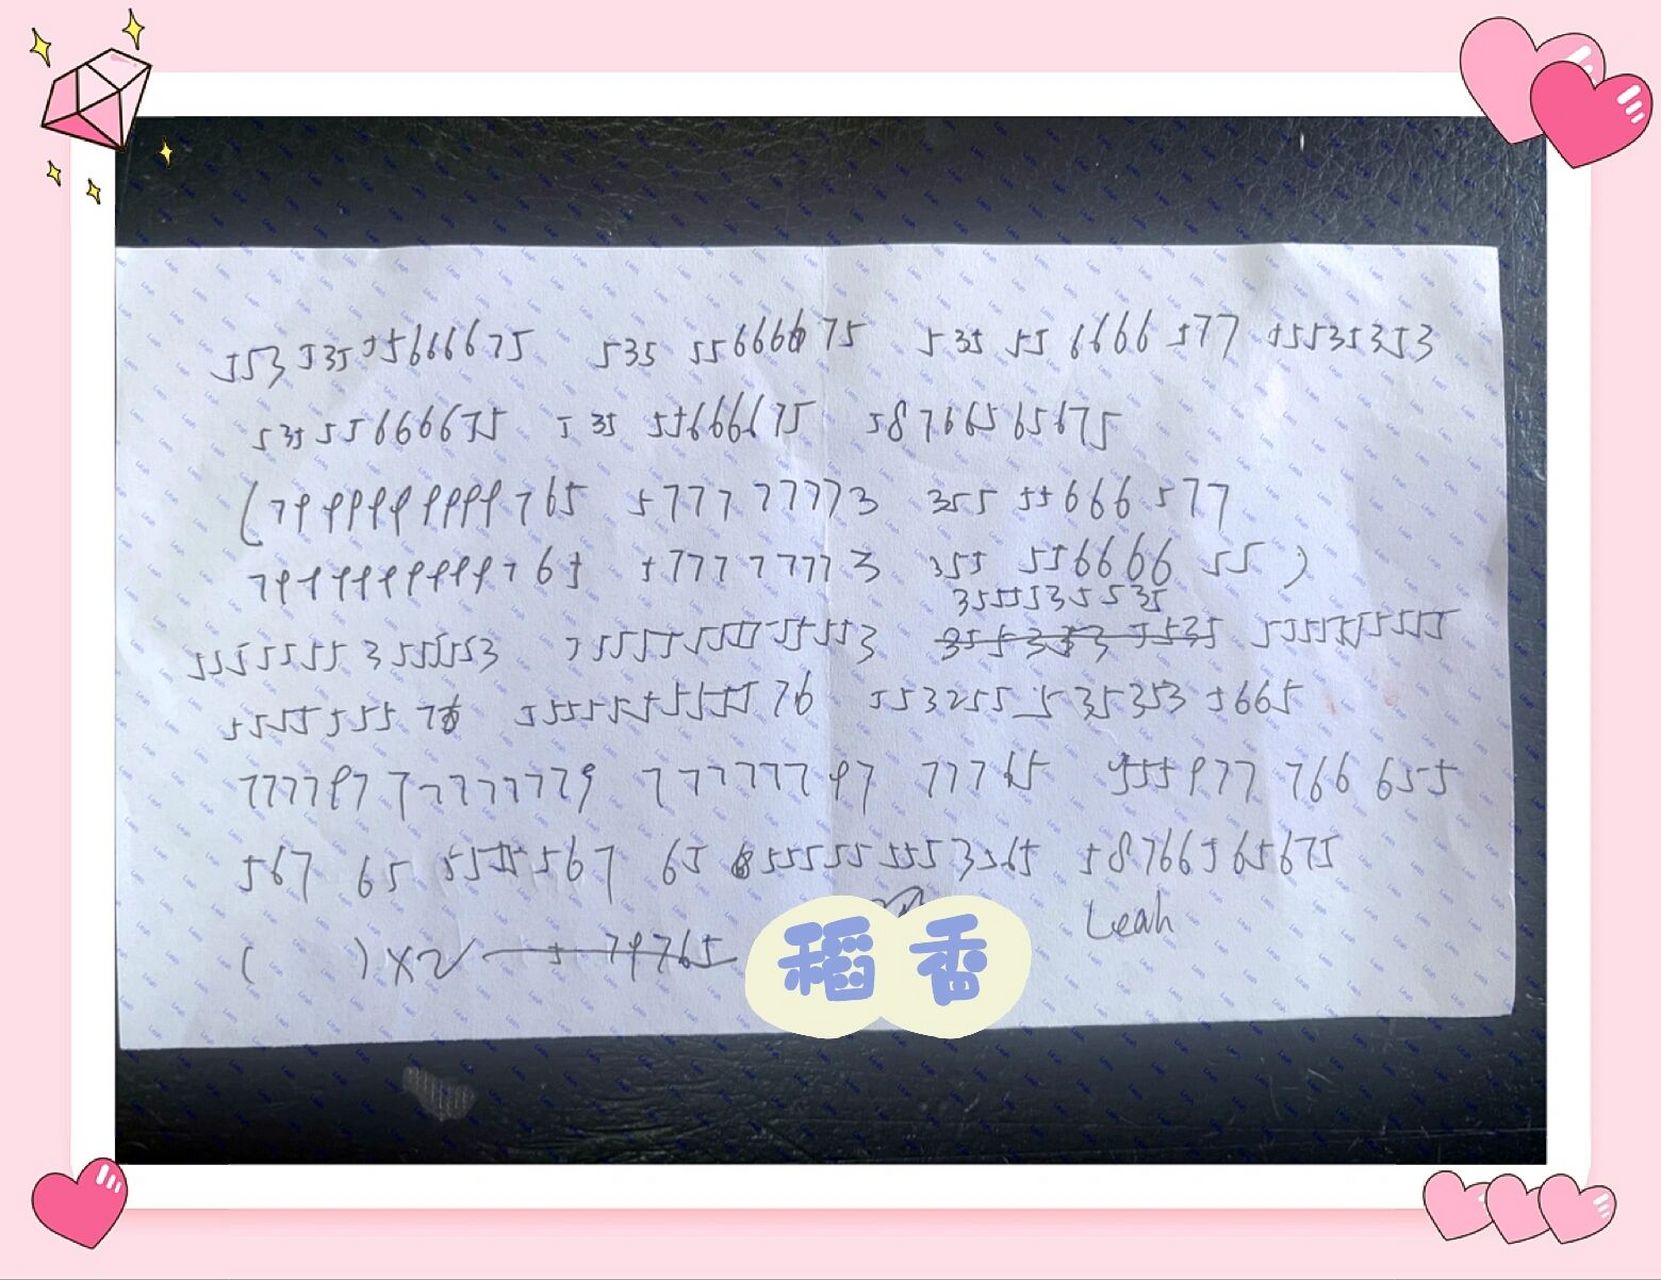 553 535 55666675 535 55666675 535 55 6666 577 55535353
535 55 666675 535 55666675 58766565675
(799999999765 5777 77773 355 55666 577
799999999765 5777 77773 355 556666 55 )
355555355 35
5555555 3 555553 355 353 5535
5555555 76 5555555555 76 553255 5 35353 5665
7777977777779 777777797 77765 955 977 766 655
567 65 5555567 65 65555555535 65 58766565675
Leah
( )×2 5 79765
稻香